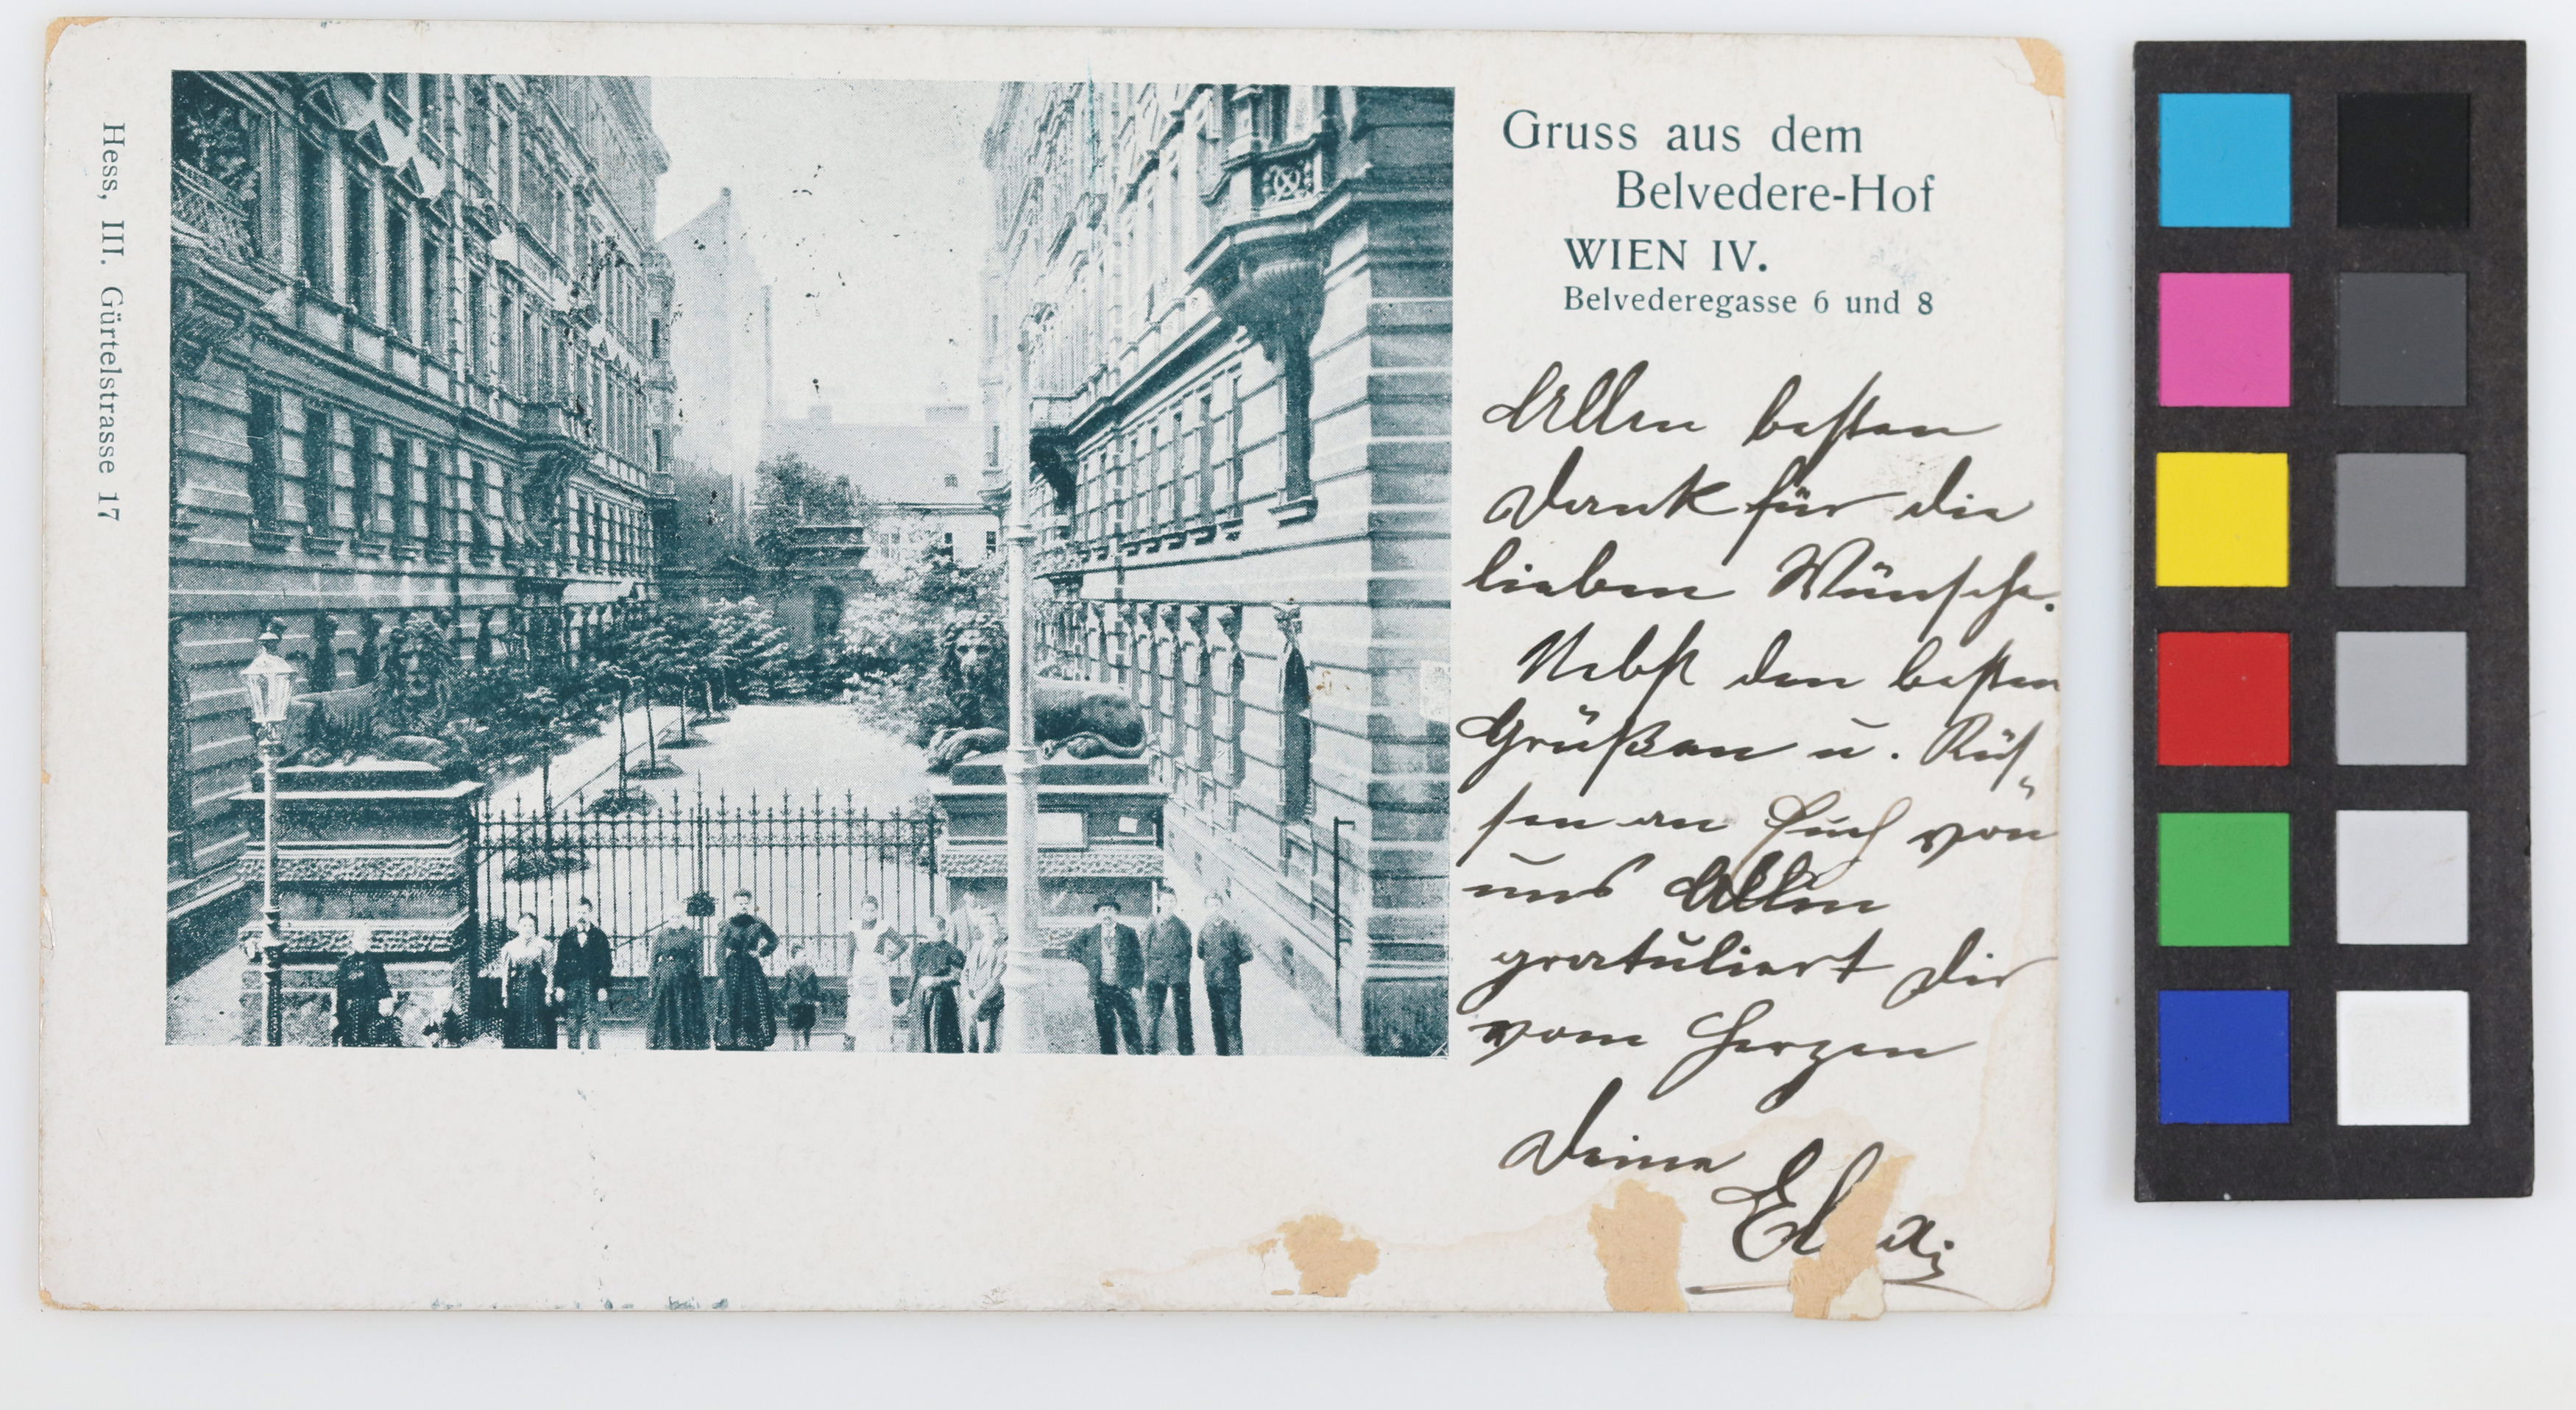 Hess, III. Gürtelstrasse 17
Gruss aus dem
Belvedere-Hof
WIEN IV.
Belvederegasse 6 und 8
Allen besten
Dank für die
lieben Wünsche.
Nebst den besten
Grüßen u. Küs-
sen an Euch von
uns Allen
gratuliert Dir
vom Herzen
Deine